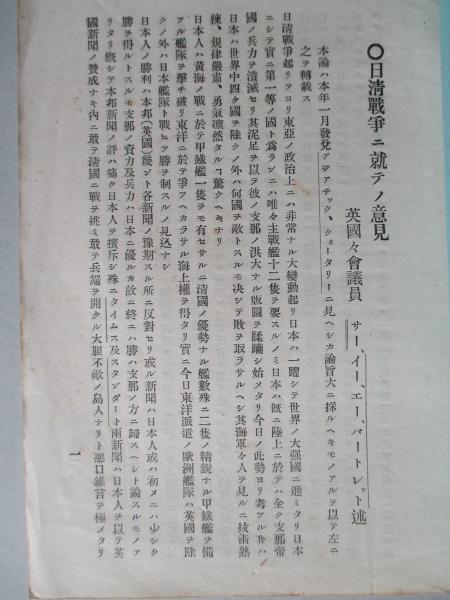 〇日淸戰爭ニ就テノ意見
英國々會議員　サー、イー、エー、バートレット述
本論ハ本年一月發兌アジアチック、クォータリーニ見ヘシカ論旨大ニ採ルヘキモノアルヲ以テ左ニ
之ヲ轉載ス
日淸戰爭起リテヨリ東亞ノ政治上ニハ非常ナル大變動起リ日本ハ一躍シテ世界ノ大强國ニ進ミタリ日本
ニシテ實ニ第一等ノ國ト爲ランニハ唯々主戰艦十二隻ヲ要スルノミ日本ハ旣ニ陸上ニ於テハ全ク支那帝
國ノ兵力ヲ潰滅セリ其泥足ヲ以テ彼ノ支那ノ洪大ナル版圖ヲ蹂躙シ始メタリ今日ノ此勢ヨリ考フルトキハ
日本ハ世界中四ケ國ヲ除クノ外ハ何國ヲ敵トスルモ決シテ敗ヲ取ラサルヘシ其海軍々人ヲ見ルニ技術熟
練、規律嚴肅、勇氣凛然タル丨驚クヘキナリ
日本人ハ黃海ノ戰ニ於テ甲鐵艦一隻ヲモ有セサルニ淸國ノ優勢ナル艦數殊ニ二隻ノ精銳ナル甲鐵艦ヲ備
フル艦隊ヲ擊チ破リ東洋ニ於テ爭フヘカラサル海上權ヲ得タリ實ニ今日東洋派遣ノ歐洲艦隊ハ英國ヲ除
クノ外ハ日本艦隊ト戰ヒテ勝ヲ制スルノ見込ナシ
日本人ノ勝利ハ本邦(英國)幾ント各新聞ノ豫期スル所ニ反對セリ或ル新聞ハ日本人或ハ初メニハ少シク
勝ヲ得ルトスルモ支那ノ資力及兵力ハ日本ニ優ルカ故ニ終ニハ勝ハ支那ノ方ニ歸スヘシト論スルモノア
リタリ槪シテ本邦新聞ノ評ハ痛ク日本人ヲ擯斥シ殊ニタイムス及スタンダート兩新聞ハ日本人ヲ以テ英
國新聞ノ賛成ナキ內ニ敢テ淸國ニ戰ヲ挑ミ敢テ兵端ヲ開クル大胆不敵ノ島人ナリト惡口雜言ヲ極メタリ
一